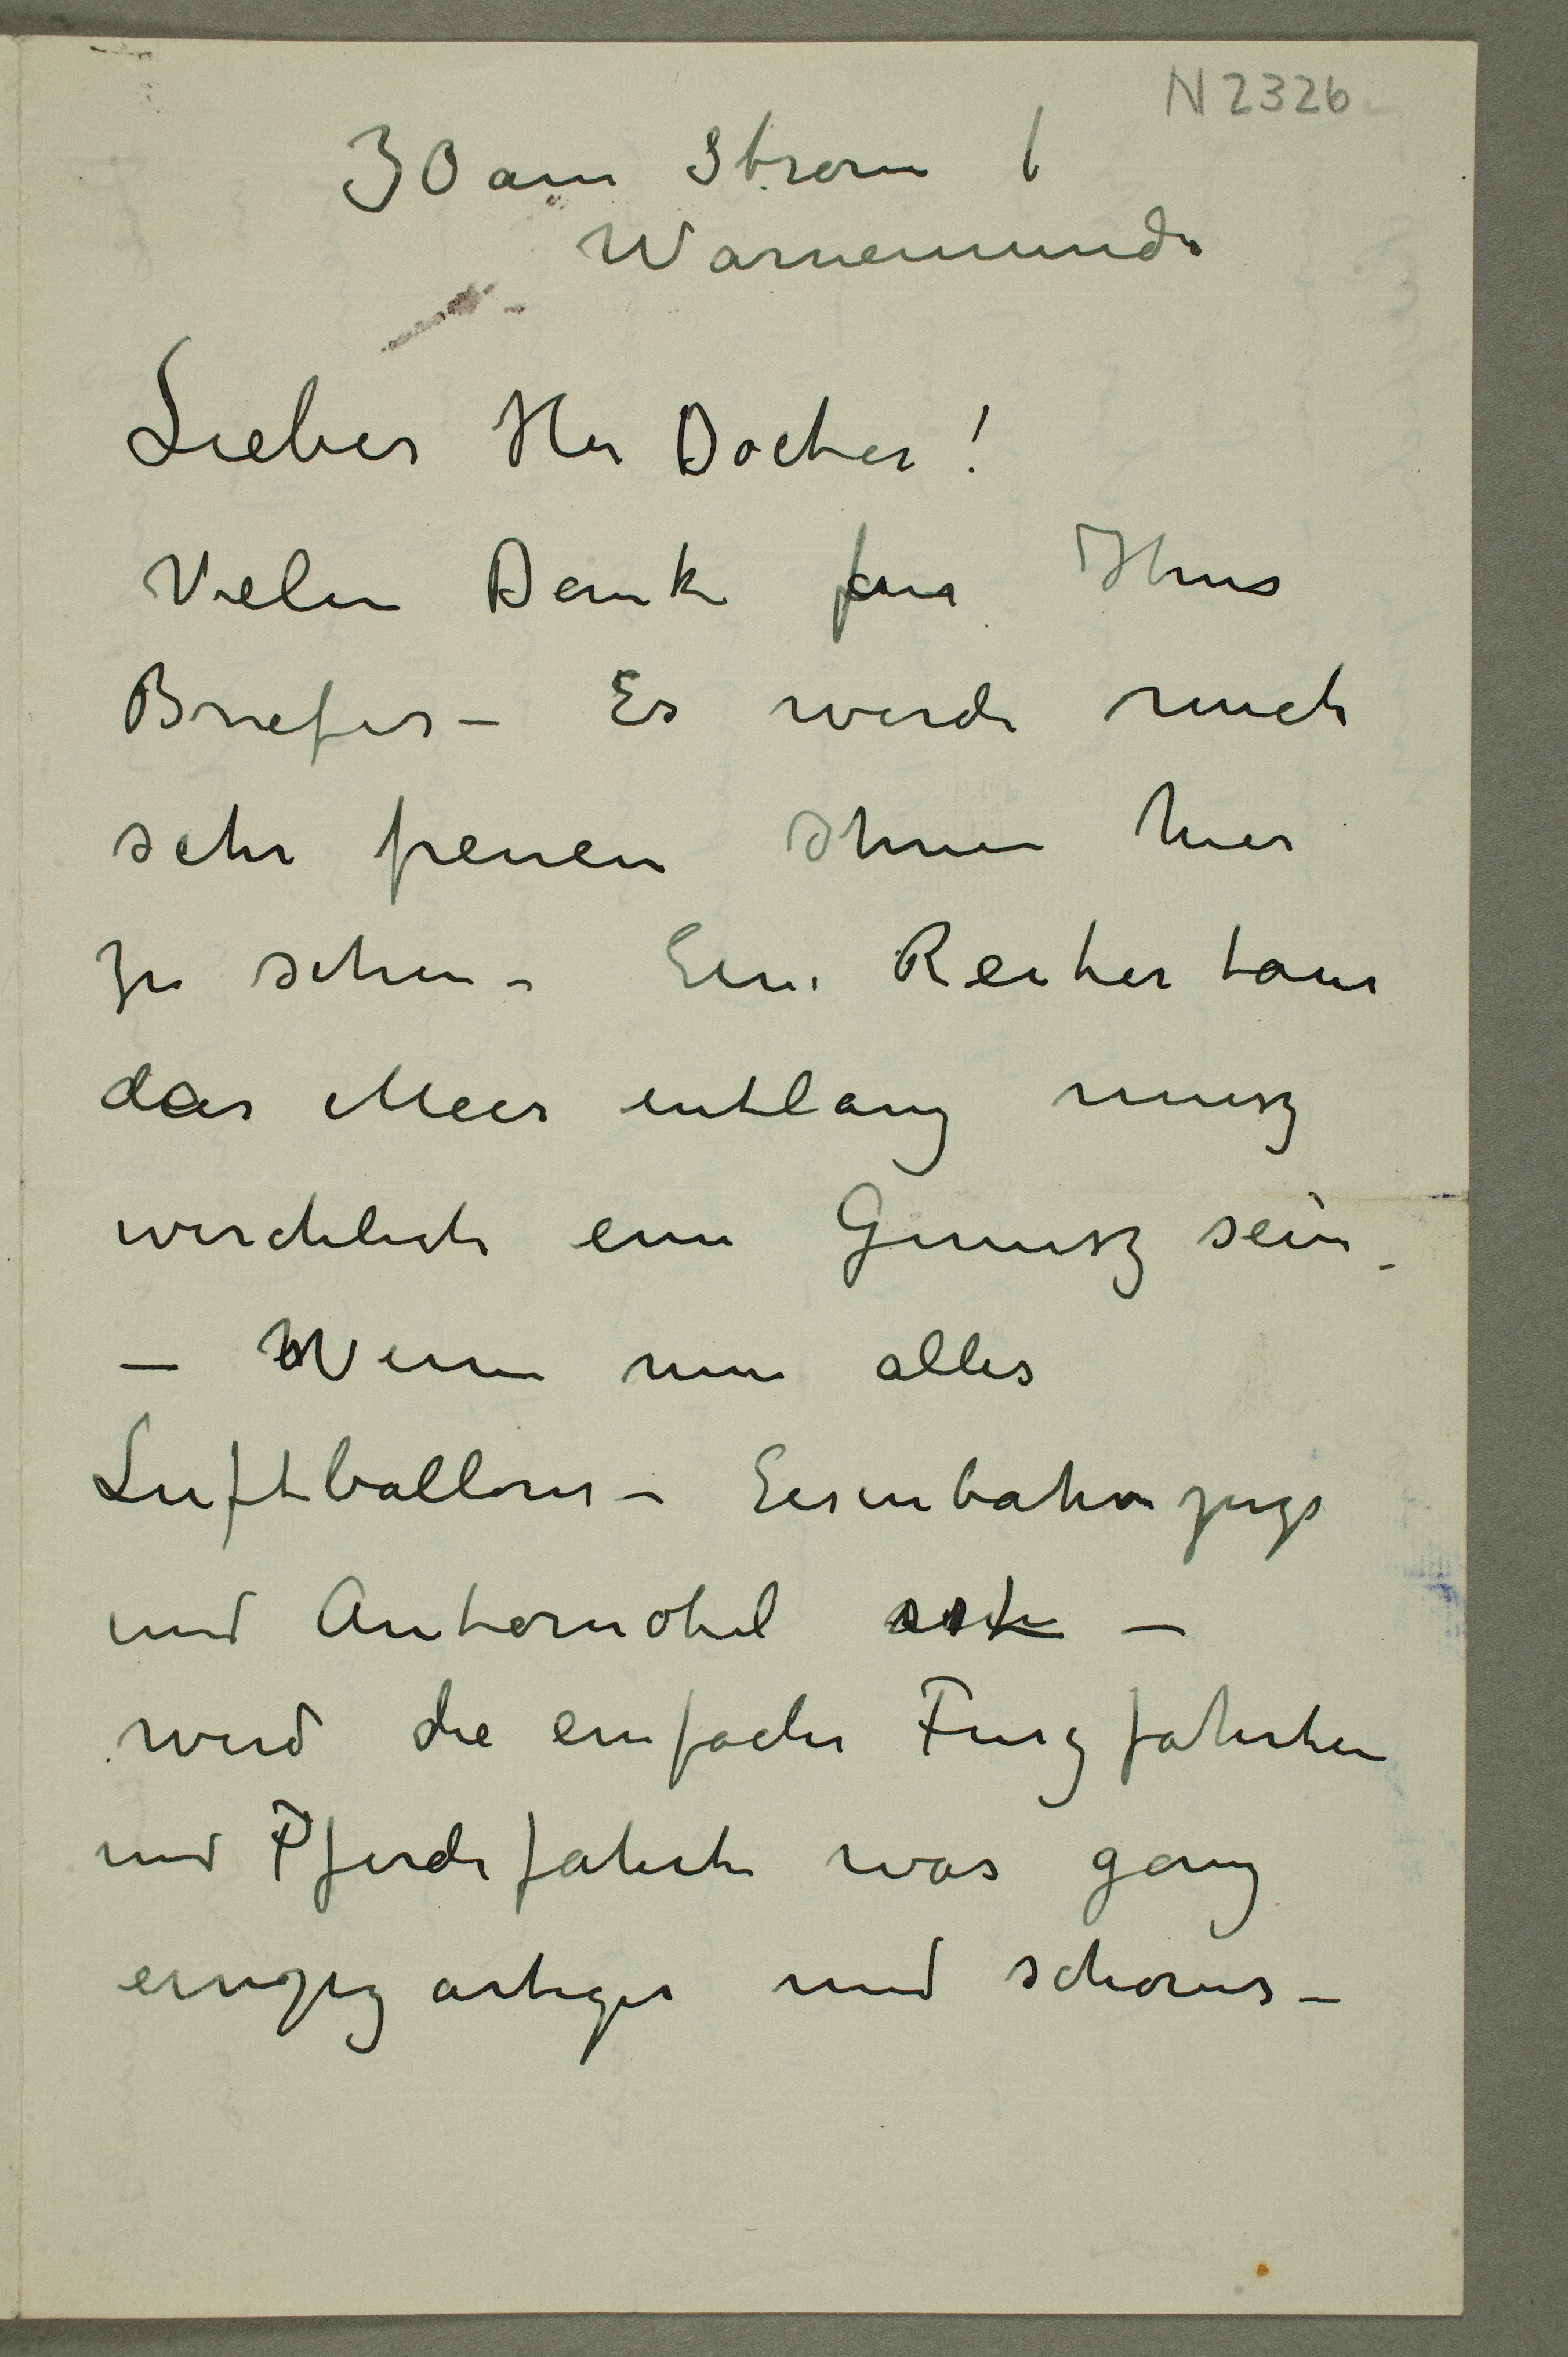 N 2326
30 am Strom (
Warnemunde
Lieber Her Docter!
Velen Danke fur Ihres
Briefes – Es werde mich
sehr freuen Ihnen hier
zu sehen – Eine Reitertour
das Meer entlang musz
wirchlich ein Genusz sein –
– Wenn nun alles
Luftballons – Eisenbahnzuge
und Automobil ist –
wird die einfache Fuszfahrten
und Pferdefahrte was ganz
einzigartiges und schones –